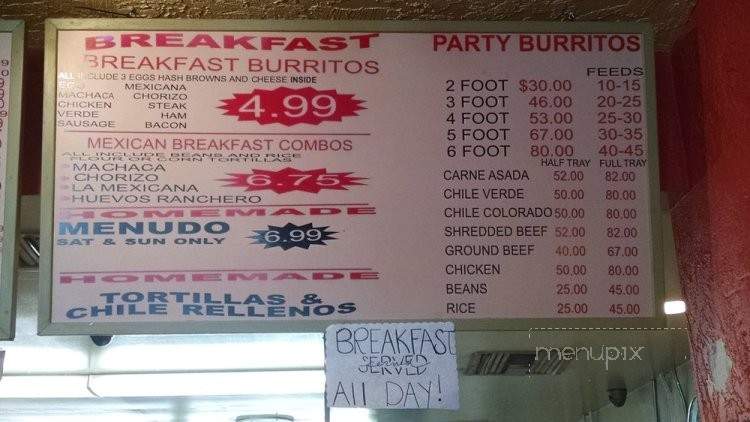 BREAKFAST
BREAKFAST BURRITOS
ALL INCLUDE 3 EGGS HASH BROWNS AND CHEESE INSIDE
EGG MEXICANA
MACHACA CHORIZO
CHICKEN STEAK
VERDE HAM
SAUSAGE BACON
4.99
MEXICAN BREAKFAST COMBOS
ALL INCLUDE BEANS AND RICE
FLOUR OR CORN TORTILLAS
MACHACA
CHORIZO
LA MEXICANA
HUEVOS RANCHERO
6.75
HOMEMADE
MENUDO
SAT & SUN ONLY
6.99
HOMEMADE
TORTILLAS &
CHILE RELLENOS
PARTY BURRITOS
FEEDS
2 FOOT $30.00 10-15
3 FOOT 46.00 20-25
4 FOOT 53.00 25-30
5 FOOT 67.00 30-35
6 FOOT 80.00 40-45
HALF TRAY FULL TRAY
CARNE ASADA 52.00 82.00
CHILE VERDE 50.00 80.00
CHILE COLORADO 50.00 80.00
SHREDDED BEEF 52.00 82.00
GROUND BEEF 40.00 67.00
CHICKEN 50.00 80.00
BEANS 25.00 45.00
RICE 25.00 45.00
BREAKFAST
SERVED
All DAY!
menupix